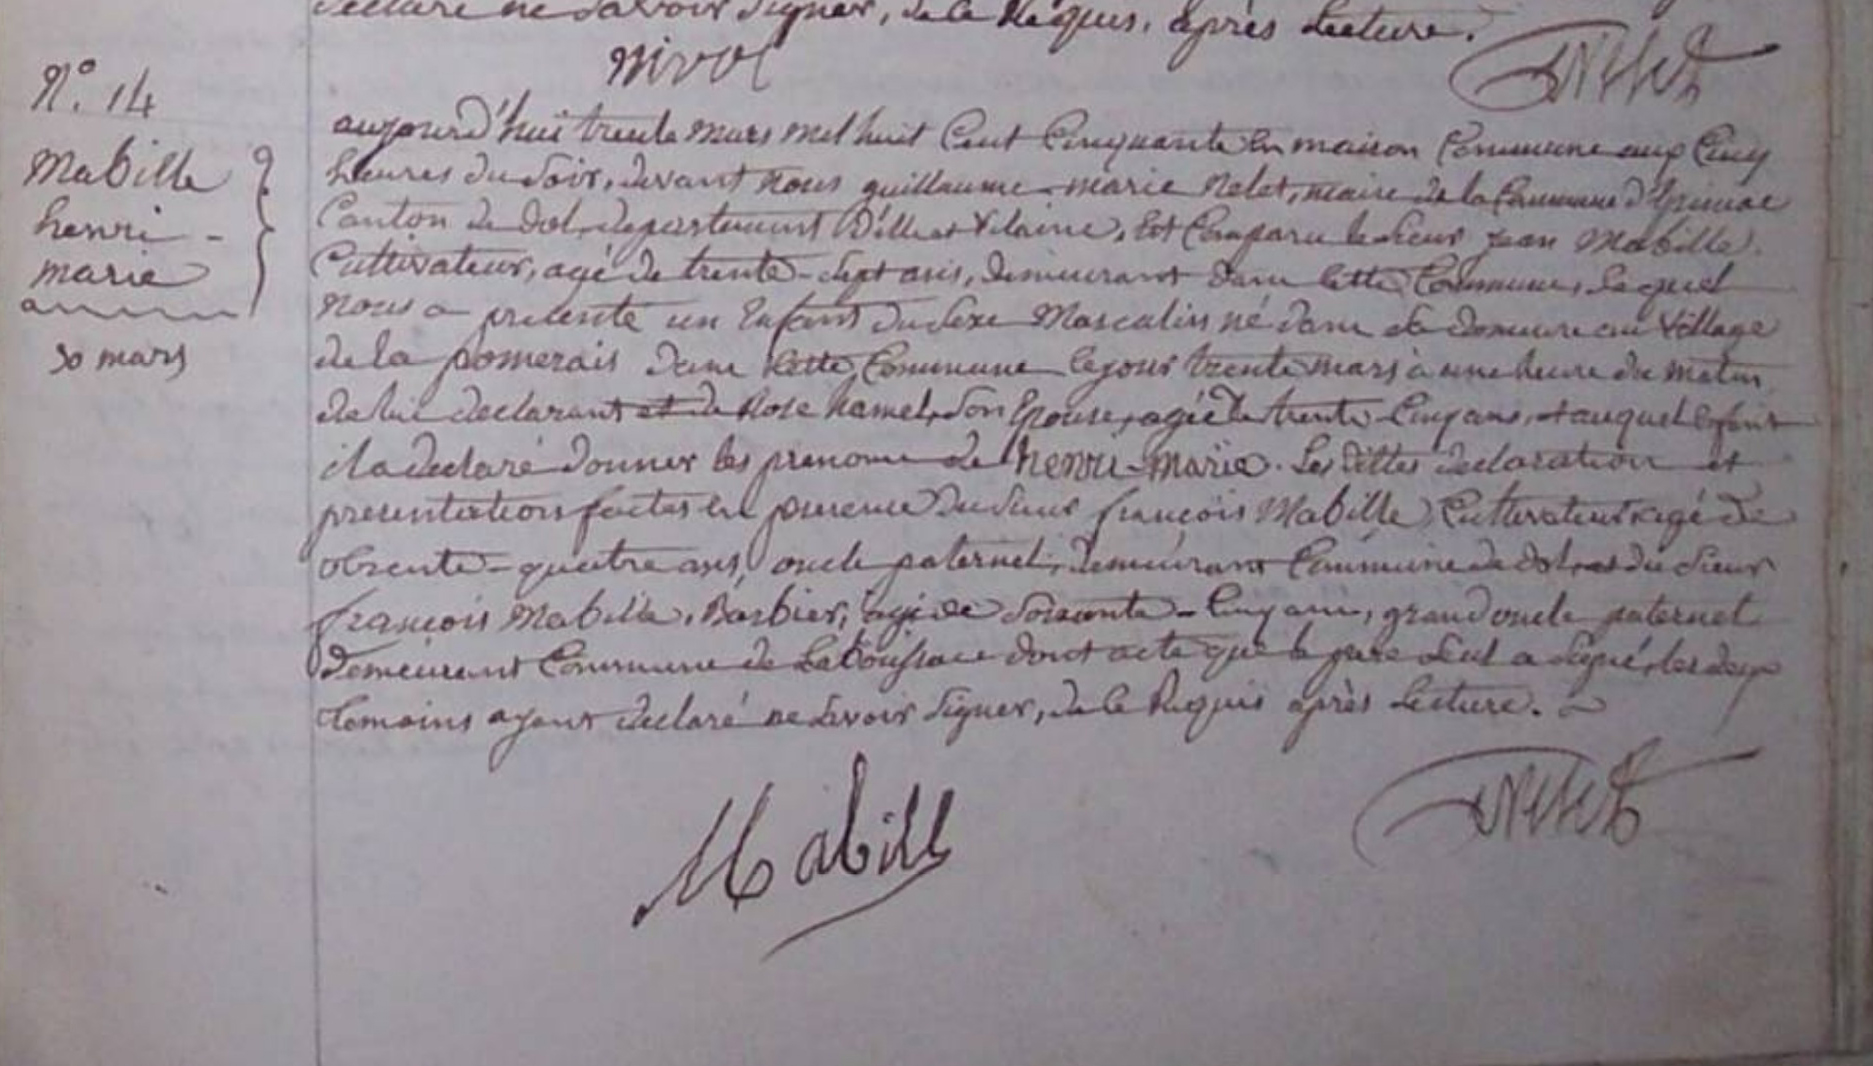 declaré ne savoir signer, de ce Requis, après Lecture.
nivol
N.° 14
Mabille
henri -
marie
30 mars
aujourd'huit trente mars mil huit Cent Cinquante En maison Commune aux Cinq
heures du Soir, devant nous guillaume-marie Nelet, maire de la Commune d'Epiniac
Canton de dol, departement D'ille et Vilaine, Est Comparu le Sieur jean Mabille.
Cultivateur, agé de trente-Sept ans, demeurant dans Cette Commune, Lequel
nous a presenté un Enfant du Sexe Masculin né dans sa demeure au Village
de la pomerais dans Cette Commune le jour trente mars à une heure du matin
de lui declarant et de Rose hamel, Son Epouse, agée de trente-Cinq ans, et auquel Enfant
il a declaré donner les prenoms de henri-marie. Les dittes declaration et
presentation faites En presence du Sieur françois Mabille Cultivateur agé de
trente-quatre ans, oncle paternel, demeurant Commune de dol, et du Sieur
françois Mabille, Barbier, agé de Soixante-Cinq ans, grand oncle paternel
demeurant Commune de La Boussace dont acte que le père Seul a Signé, les deux
temoins ayant declaré ne Savoir Signer, de ce Requis après Lecture.
Mabille
Nelet